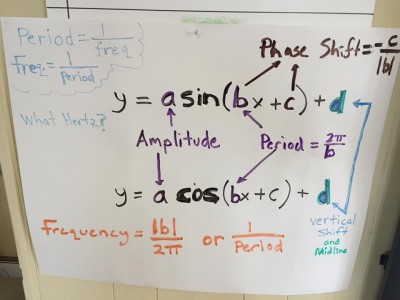 Period = 1/freq
Freq = 1/Period
What Hertz?
Phase Shift = -c/|b|
y = a sin(bx + c) + d
Amplitude
Period = 2π/b
y = a cos(bx + c) + d
vertical
shift
and
Midline
Frequency = |b|/2π or 1/Period